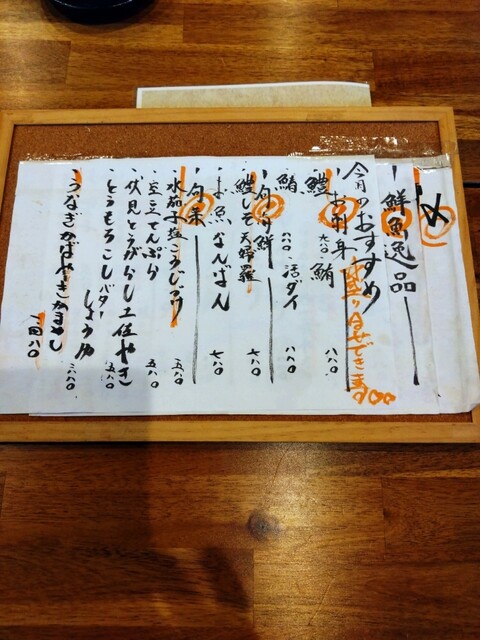 め
鮮魚逸品
今月のおすすめ
お刺身 盛り合せできま
鱧 九八〇 鮪 八八〇
八八〇 活ダイ 八八〇
旬海鮮
鱧しそ天婦羅 六八〇
お魚なんばん 七八〇
旬菜
水茄子塩こうじ 五八〇
豆てんぷら 五八〇
伏見とうがらし土佐やき
とうもろこしバターしょうゆ 五八〇
うなぎかばやき
八〇